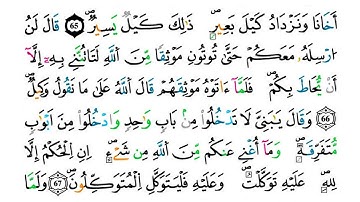 أَخَانَا وَنَزْدَادُ كَيْلَ بَعِيرٍ ۖ ذَٰلِكَ كَيْلٌ يَسِيرٌ ﴿65﴾ قَالَ لَنْ
أُرْسِلَهُ مَعَكُمْ حَتَّىٰ تُؤْتُونِ مَوْثِقًا مِّنَ اللَّهِ لَتَأْتُنَّنِي بِهِ إِلَّا
أَنْ يُحَاطَ بِكُمْ ۖ فَلَمَّا آتَوْهُ مَوْثِقَهُمْ قَالَ اللَّهُ عَلَىٰ مَا نَقُولُ وَكِيلٌ
﴿66﴾ وَقَالَ يَا بَنِيَّ لَا تَدْخُلُوا مِنْ بَابٍ وَاحِدٍ وَادْخُلُوا مِنْ أَبْوَابٍ
مُتَفَرِّقَةٍ ۖ وَمَا أُغْنِي عَنْكُمْ مِّنَ اللَّهِ مِنْ شَيْءٍ ۖ إِنِ الْحُكْمُ إِلَّا
لِلَّهِ ۖ عَلَيْهِ تَوَكَّلْتُ ۖ وَعَلَيْهِ فَلْيَتَوَكَّلِ الْمُتَوَكِّلُونَ ﴿67﴾ وَلَمَّا